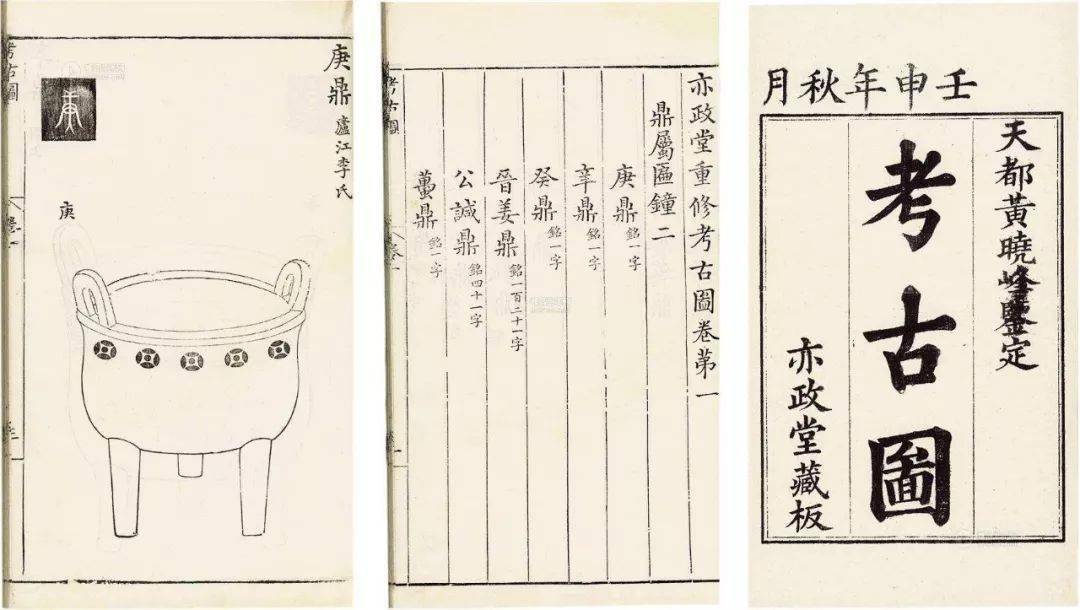 壬申年秋月
天都黃曉峰鑒定
考古圖
亦政堂藏板
亦政堂重修考古圖卷第一
鼎屬鐘二
庚鼎 銘一字
辛鼎 銘一字
癸鼎 銘一字
晉姜鼎 銘一百二十一字
公諴鼎 銘四十一字
蠆鼎 銘一字
考古圖
卷一
庚鼎 廬江李氏
庚
考古圖
卷一